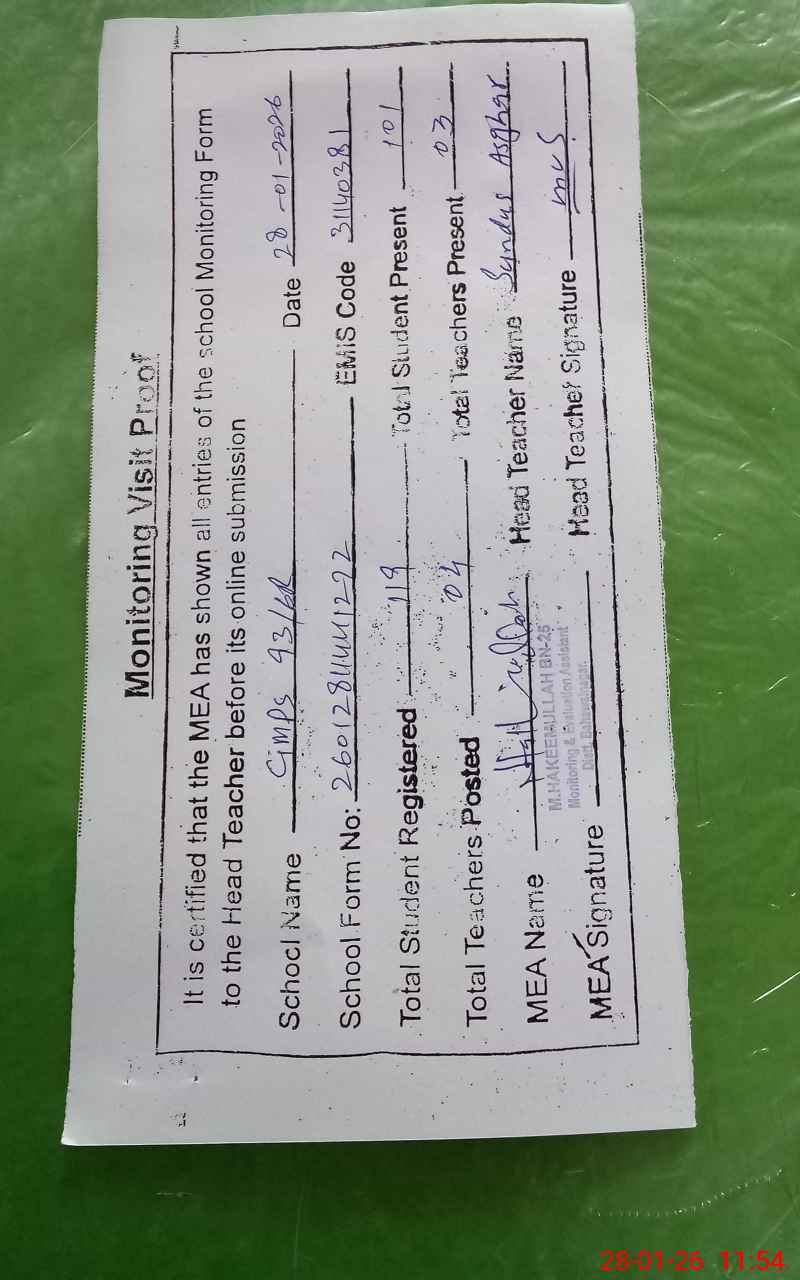 Monitoring Visit Proof
It is certified that the MEA has shown all entries of the school Monitoring Form
to the Head Teacher before its online submission
School Name GMPS 93/6R Date 28-01-2026
School Form No: EMIS Code 31140381
Total Student Registered 119 Total Student Present 101
Total Teachers Posted 04 Total Teachers Present 03
MEA Name Head Teacher Name Syndus Asghar
M.HAKEEMULLAH BN-25
Monitoring & Evaluation Assistant
Distt. Bahawalnagar.
MEA Signature Head Teacher Signature
28-01-26 11:54